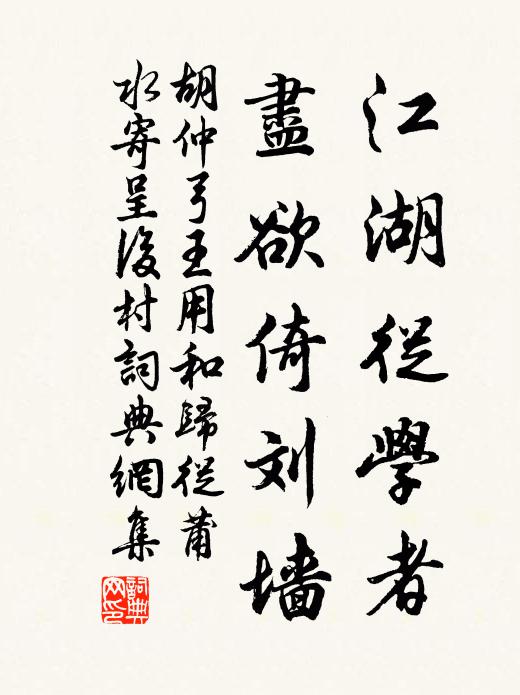 江湖從學者
盡欲倚刘墙
胡仲弓王用和歸從莆
水寄呈後村詞典網集
詞典網印